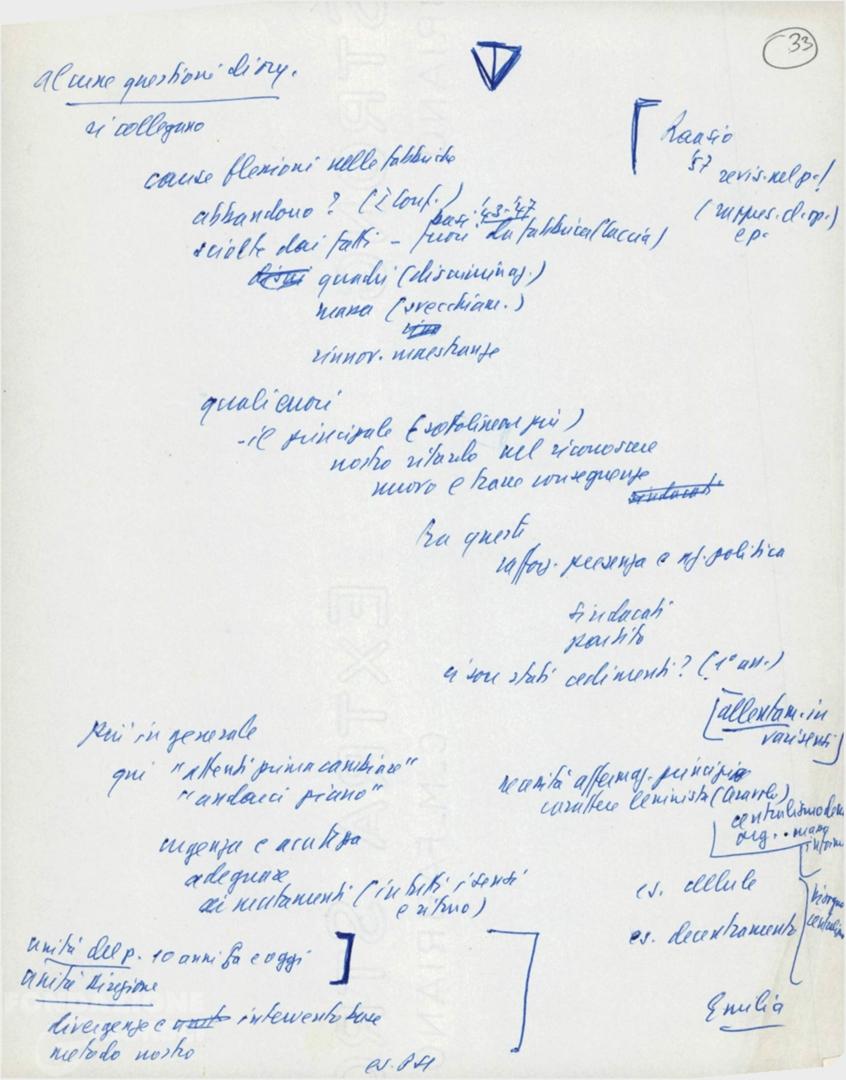 33
alcune questioni di org.
si collegano
cause flessioni nelle fabbriche
abbandono? (2 Conf.)
basi '43-'47
sciolte dai fatti - fuori da fabbrica (caccia)
quadri (discriminaz.)
massa (svecchiam.)
rinnov. maestranze
'57
revis. nel p.!
(rappres. d. op.)
e p.
quali errori
- il principale (sottolinear più)
nostro ritardo nel riconoscere
nuovo e trarre conseguenze
sindacati
tra questi
raffor. presenza e politica
sindacati
partito
ci son stati cedimenti? (1° ann.)
[allentam. in
vari sensi]
Più in generale
qui "attenti prima cambiare"
"andarci piano"
necessità affermaz. principio
carattere leninista
centralismo dem
org. • massa
urgenza e acutezza
adeguare
ai mutamenti (in tutti i sensi
e ritmo)
es. cellule
es. decentramento
unità del p. 10 anni fa e oggi
unità direzione
divergenze e intervento base
metodo nostro
Emilia
es. PSI